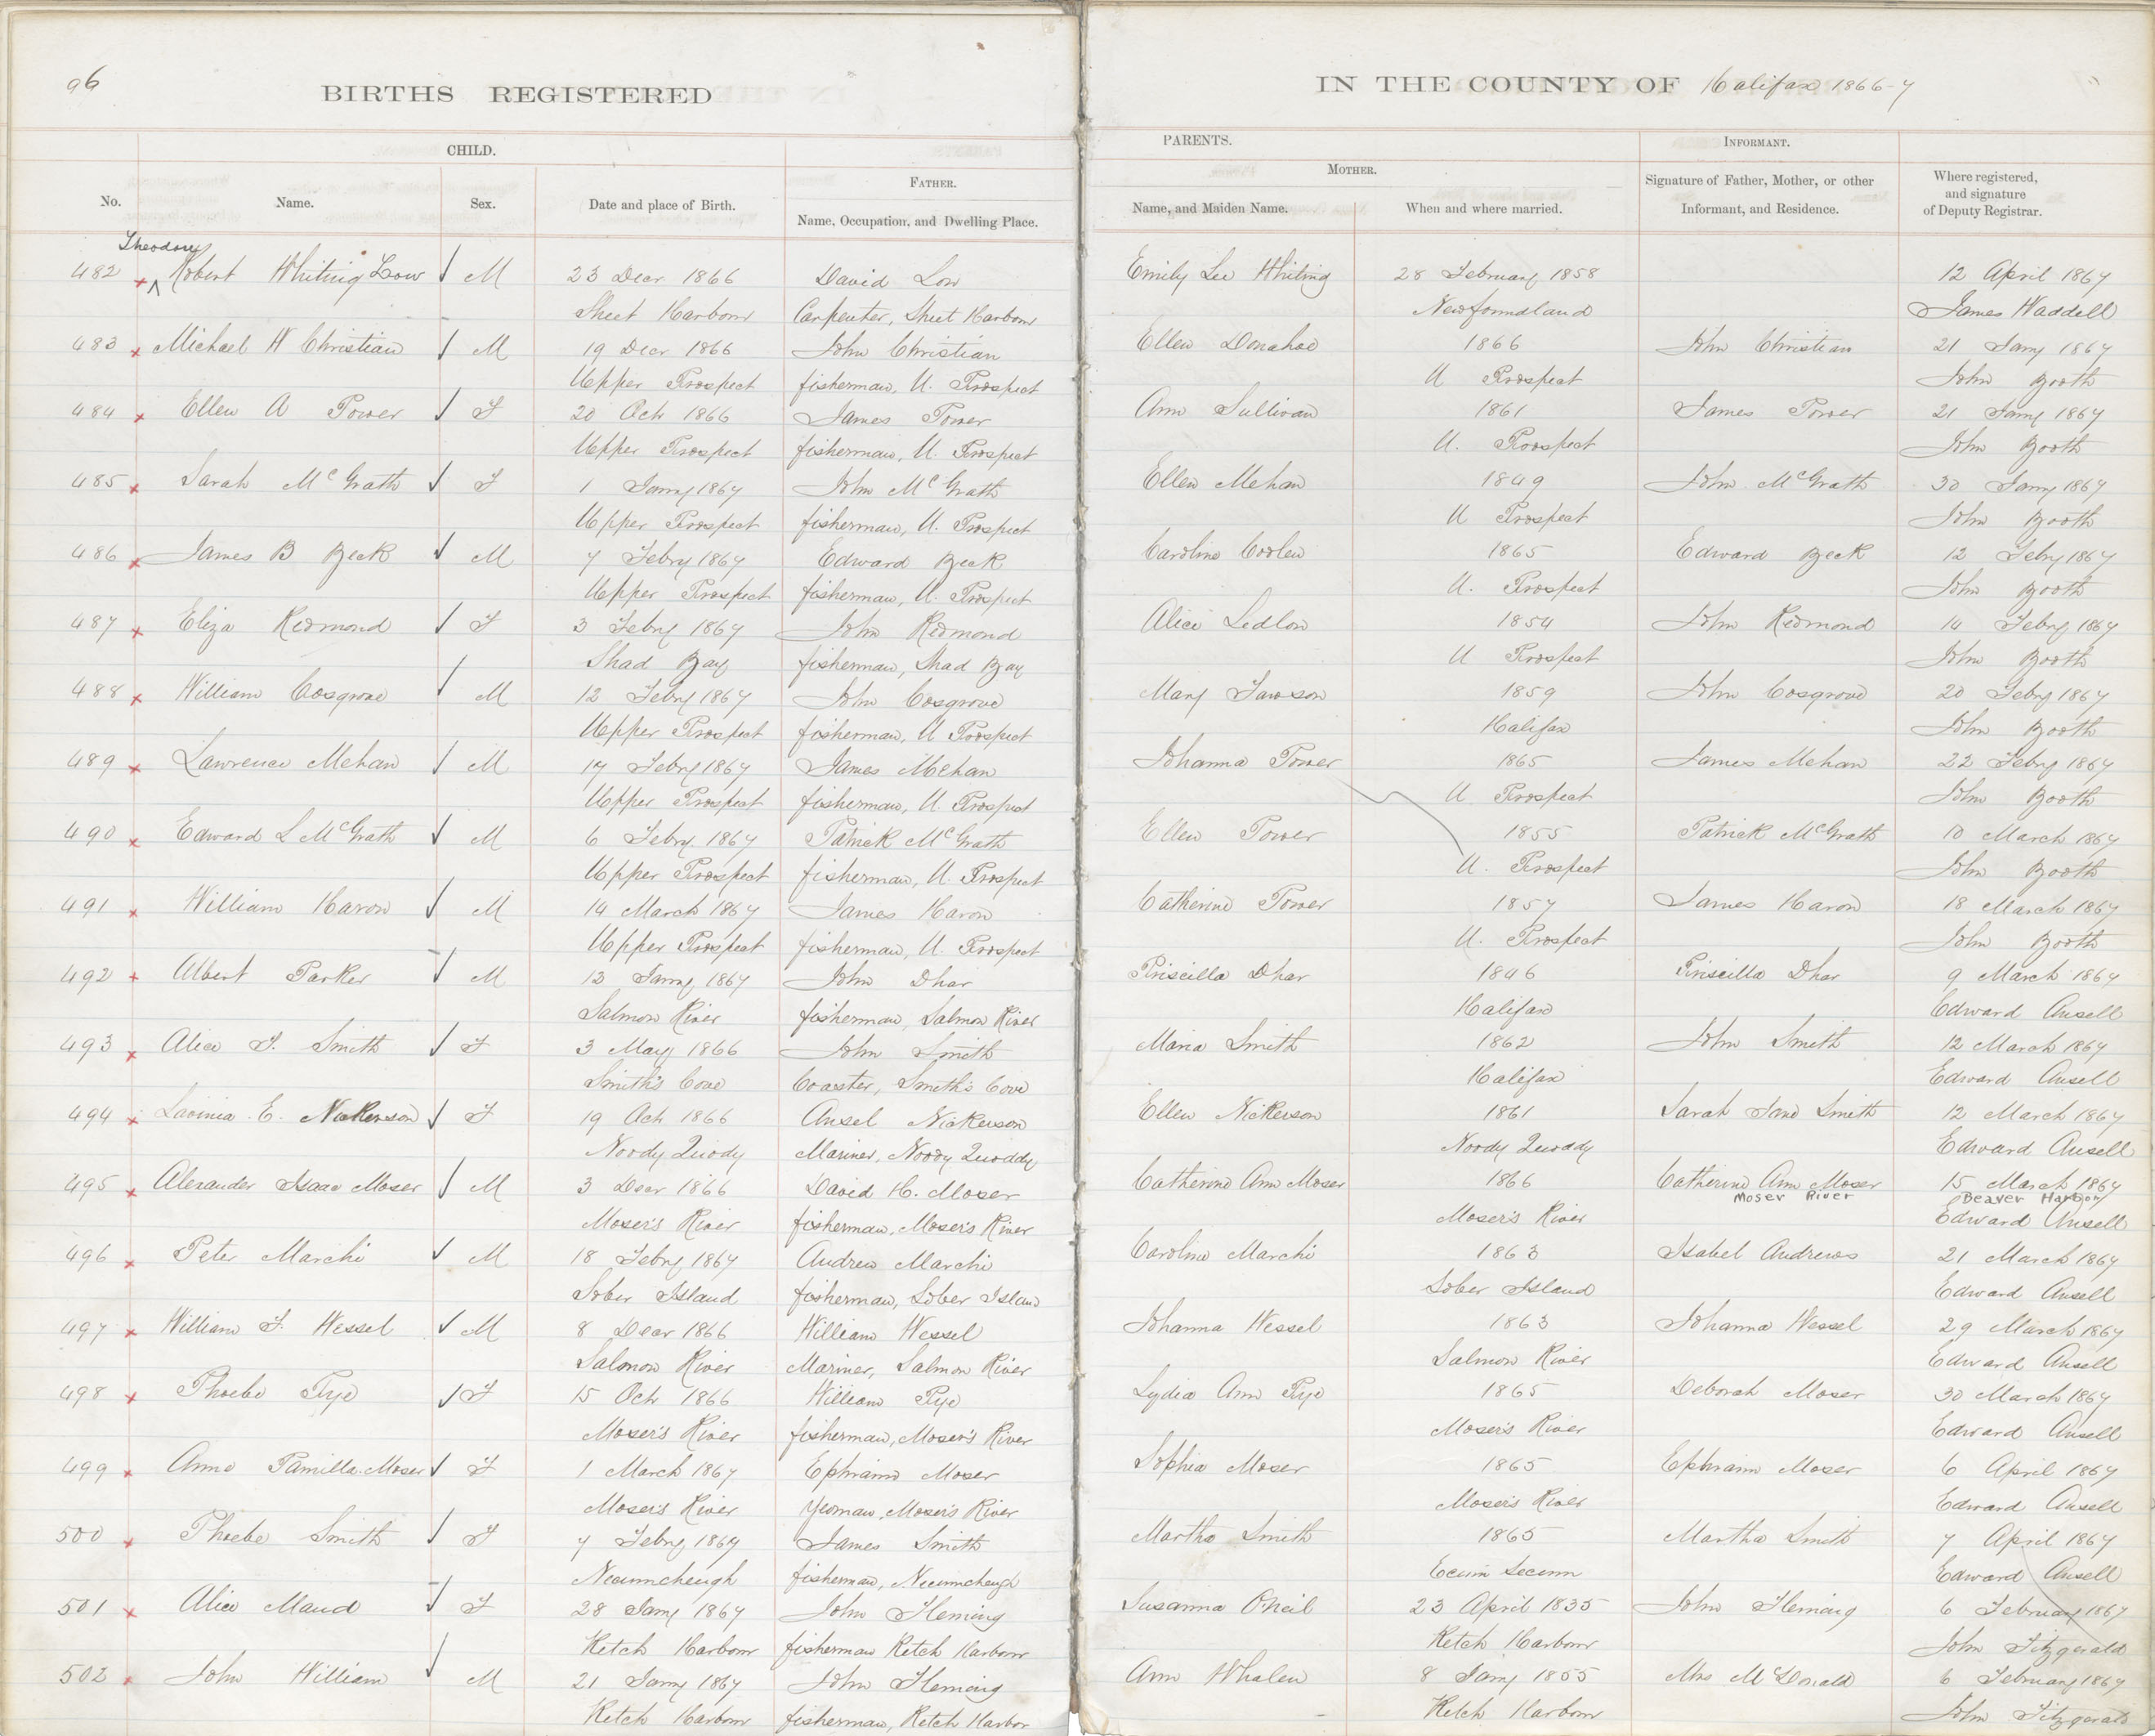 96
BIRTHS REGISTERED
IN THE COUNTY OF Halifax 1866-7
CHILD.
PARENTS.
INFORMANT.
No.
Name.
Sex.
Date and place of Birth.
FATHER.
Name, Occupation, and Dwelling Place.
MOTHER.
Name, and Maiden Name.
When and where married.
Signature of Father, Mother, or other
Informant, and Residence.
Where registered,
and signature
of Deputy Registrar.
Theodore
482 x ^ Robert Whiting Low M 23 Decr 1866 David Low Emily Lee Whiting 28 February 1858 12 April 1867
Sheet Harbour Carpenter, Sheet Harbour Newfoundland James Waddell
483 x Michael W Christian M 19 Decr 1866 John Christian Ellen Donahoe 1866 John Christian 21 Jany 1867
Upper Prospect fisherman, U. Prospect U Prospect John Booth
484 x Ellen A Power F 20 Octr 1866 James Power Ann Sullivan 1861 James Power 21 Jany 1867
Upper Prospect fisherman, U. Prospect U. Prospect John Booth
485 x Sarah McGrath F 1 Jany 1867 John McGrath Ellen Mehan 1849 John McGrath 30 Jany 1867
Upper Prospect fisherman, U. Prospect U Prospect John Booth
486 x James B Beck M 7 Febry 1867 Edward Beck Caroline Coolen 1865 Edward Beck 12 Febry 1867
Upper Prospect fisherman, U. Prospect U. Prospect John Booth
487 x Eliza Redmond F 3 Febry 1867 John Redmond Alice Ledlow 1854 John Redmond 14 Febry 1867
Shad Bay fisherman, Shad Bay U Prospect John Booth
488 x William Cosgrove M 12 Febry 1867 John Cosgrove Mary Jawson 1859 John Cosgrove 20 Febry 1867
Upper Prospect fisherman, U Prospect Halifax John Booth
489 x Lawrence Mehan M 17 Febry 1867 James Mehan Johanna Power 1865 James Mehan 22 Febry 1867
Upper Prospect fisherman, U. Prospect U Prospect John Booth
490 x Edward L McGrath M 6 Febry 1867 Patrick McGrath Ellen Power 1855 Patrick McGrath 10 March 1867
Upper Prospect fisherman, U. Prospect U. Prospect John Booth
491 x William Haron M 14 March 1867 James Haron Catherine Power 1857 James Haron 18 March 1867
Upper Prospect fisherman, U. Prospect U. Prospect John Booth
492 x Albert Parker M 13 Jany 1867 John Dhar Priscilla Dhar 1846 Priscilla Dhar 9 March 1867
Salmon River fisherman, Salmon River Halifax Edward Ansell
493 x Alice F. Smith F 3 May 1866 John Smith Maria Smith 1862 John Smith 12 March 1867
Smith's Cove Coaster, Smith's Cove Halifax Edward Ansell
494 x Lavinia E. Nickerson F 19 Octr 1866 Ansel Nickerson Ellen Nickerson 1861 Sarah Jane Smith 12 March 1867
Noody Quody Mariner, Noody Quoddy Noody Quoddy Edward Ansell
495 x Alexander Isaac Moser M 3 Decr 1866 David H. Moser Catherine Ann Moser 1866 Catherine Ann Moser 15 March 1867
Moser River Beaver Harbour
Moser's River fisherman, Moser's River Moser's River Edward Ansell
496 x Peter Marchi M 18 Febry 1867 Andrew Marchi Caroline Marchi 1863 Isabel Andrews 21 March 1867
Sober Island fisherman, Sober Island Sober Island Edward Ansell
497 x William F. Wessel M 8 Decr 1866 William Wessel Johanna Wessel 1863 Johanna Wessel 29 March 1867
Salmon River Mariner, Salmon River Salmon River Edward Ansell
498 x Phoebe Pye F 15 Octr 1866 William Pye Lydia Ann Pye 1865 Deborah Moser 30 March 1867
Moser's River fisherman, Moser's River Moser's River Edward Ansell
499 x Anne Pamilla Moser F 1 March 1867 Ephraim Moser Sophia Moser 1865 Ephraim Moser 6 April 1867
Moser's River Yeoman, Moser's River Moser's River Edward Ansell
500 x Phoebe Smith F 7 Febry 1867 James Smith Martha Smith 1865 Martha Smith 7 April 1867
Necumcheugh fisherman, Necumcheugh Ecum Secum Edward Ansell
501 x Alice Maud F 28 Jany 1867 John Fleming Susanna O'Neil 23 April 1835 John Fleming 6 February 1867
Ketch Harbour fisherman Ketch Harbour Ketch Harbour John Fitzgerald
502 x John William M 21 Jany 1867 John Fleming Ann Whalen 8 Jany 1855 Mrs McDonald 6 February 1867
Ketch Harbour fisherman, Ketch Harbor Ketch Harbour John Fitzgerald